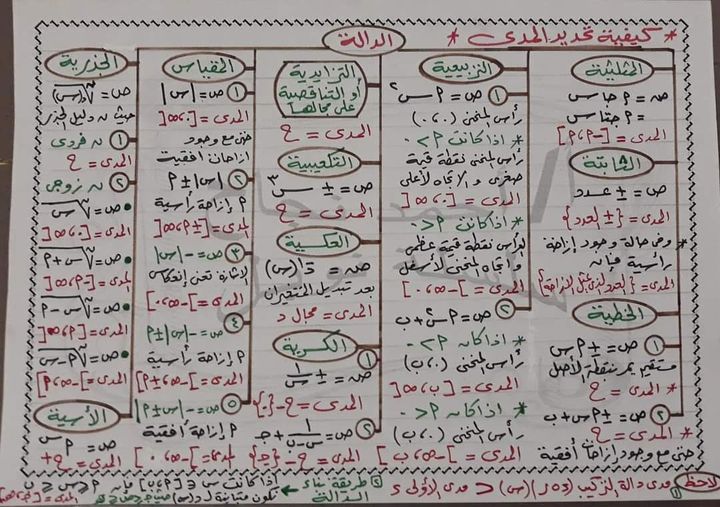 * كيفية تحديد المدى *
الدالة
المثلثية
ص = م جا س
= م جتا س
المدى = [-م،م]
الثابتة
ص = ± عدد
المدى = {± العدد}
* وفى حالة وجود إزاحة
رأسية فإنه
الخطية
① ص = ± م س
مستقيم يمر بنقطة الأصل
* المدى = ح
② ص = ± م س + ب
* المدى = ح
حتى مع وجود إزاحات أفقية
التربيعية
① ص = م س²
رأس المنحنى (٠،٠)
* اذا كانت م > ٠
رأس المنحنى نقطة قيمة
صغرى والاتجاه لأعلى
المدى = [٠،∞[
* اذا كانت م < ٠
الرأس نقطة قيمة عظمى
واتجاه المنحنى لأسفل
المدى = ]-∞،٠]
② ص = م س² + ب
* اذا كان م > ٠
رأس المنحنى (٠،ب)
المدى = [ب،∞[
* اذا كان م < ٠
رأس المنحنى (٠،ب)
المدى = ]-∞،ب]
التزايدية
أو التناقصية
على مجالها
المدى = ح
التكعيبية
ص = ± س³
المدى = ح
العكسية
بعد تبديل المتغيران
المدى = مجال د
الكسرية
① ص = ± ١/س
المدى = ح - {٠}
المدى = ح - {جـ}
المقياس
① ص = |س|
المدى = [٠،∞[
حتى مع وجود
ازاحات افقية
② |س| ± م
م إزاحة رأسية
المدى = [±م،∞[
③ ص = -|س|
الاشارة تعنى إنعكاس
المدى = ]-∞،٠]
④ ص = -|س| ± م
م إزاحة رأسية
المدى = ]-∞،±م]
⑤ ص = -|س ± م|
م إزاحة أفقية
المدى = ]-∞،٠]
الجذرية
حيث ن دليل الجذر
① ن فردى
المدى = ح
② ن زوجى
المدى = [٠،∞[
الأسية
ص = م^س
المدى = ح+
لاحظ
① مدى دالة التركيب (د∘ر)(س) ⊂ مدى الأولى د
② طريقة بناء الدالة